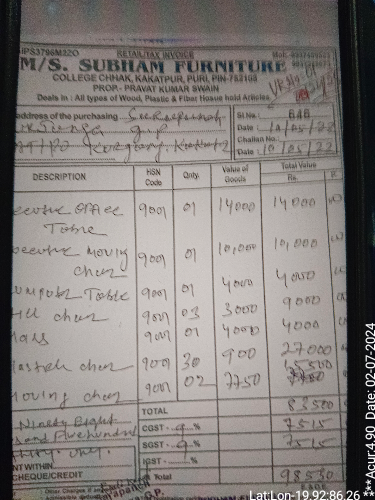 RETAIL/TAX INVOICE
M/S. SUBHAM FURNITURE
COLLEGE CHHAK, KAKATPUR, PURI, PIN-752108
PROP.- PRAVAT KUMAR SWAIN
Deals in : All types of Wood, Plastic & Fiber House hold Articles
address of the purchasing
Sl No. : 646
Date : 10/05/22
Challan No.:
Date : 10/05/22
DESCRIPTION HSN Code Qnty. Value of Goods Total Value Rs. P.
ecutive office Table 9001 01 14000 14000
ecutive moving chair 9001 01 10,000 10,000
omputer Table 9001 01 4000 4000
chair 9001 03 3000 9000
9001 01 4000 4000
lastick chair 9001 30 900 27000
moving chair 9001 02 7750 15500
TOTAL 83500
Ninety Eight
CGST - 9 % 7515
and Five hundred
SGST - 9 % 7515
thirty only.
IGST - %
NT WITHIN
CHEQUE/CREDIT
Total 98530
Other Charges if any
Lat:Lon-19.92:86.26
***Acur:4.90 Date: 02-07-2024